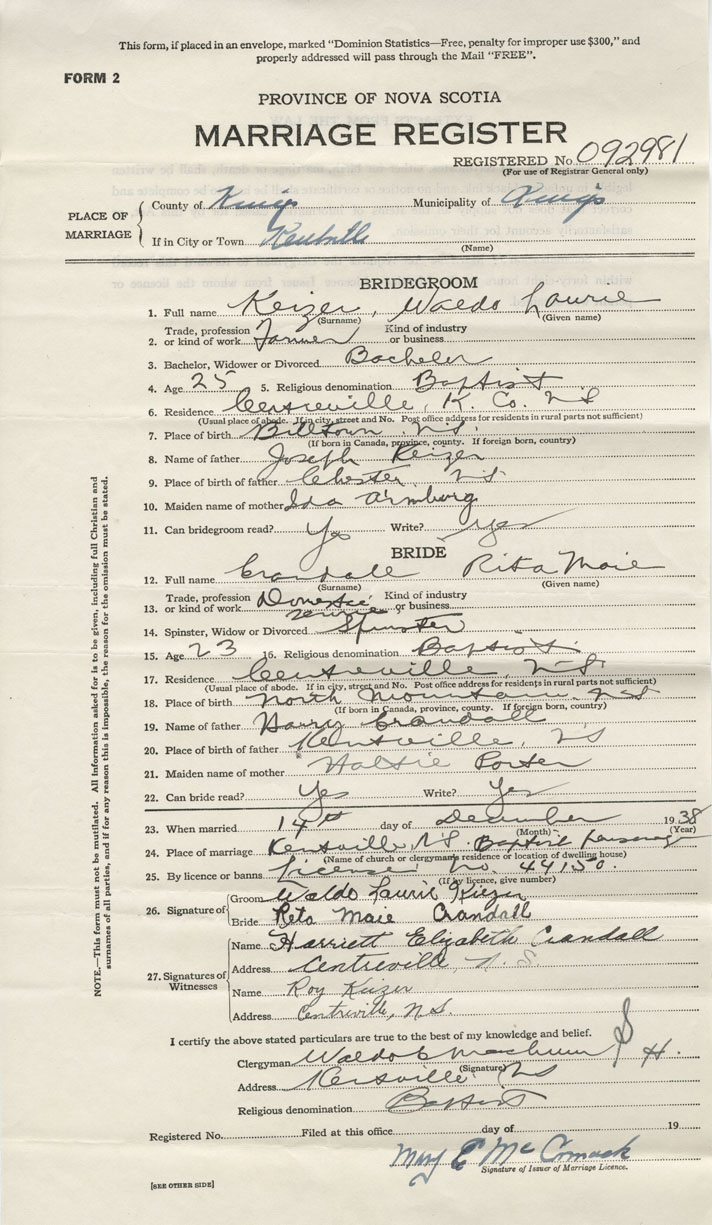 This form, if placed in an envelope, marked "Dominion Statistics—Free, penalty for improper use $300," and
properly addressed will pass through the Mail "FREE".
FORM 2
PROVINCE OF NOVA SCOTIA
MARRIAGE REGISTER
REGISTERED No. 092981
(For use of Registrar General only)
PLACE OF MARRIAGE
County of Kings Municipality of Kings
If in City or Town Kentville
(Name)
BRIDEGROOM
1. Full name Keizer, Waldo Laurie
(Surname) (Given name)
Trade, profession Kind of industry
2. or kind of work Farmer or business
3. Bachelor, Widower or Divorced Bachelor
4. Age 25 5. Religious denomination Baptist
6. Residence Centreville, K. Co. N S
(Usual place of abode. If in city, street and No. Post office address for residents in rural parts not sufficient)
7. Place of birth Billtown N.S.
(If born in Canada, province, county. If foreign born, country)
8. Name of father Joseph Keizer
9. Place of birth of father Chester, N S
10. Maiden name of mother Ida Armburg
11. Can bridegroom read? Yes Write? Yes
BRIDE
12. Full name Crandall Rita Maie
(Surname) (Given name)
Trade, profession Domestic Kind of industry
13. or kind of work or business
14. Spinster, Widow or Divorced Spinster
15. Age 23 16. Religious denomination Baptist
17. Residence Centreville, N S
(Usual place of abode. If in city, street and No. Post office address for residents in rural parts not sufficient)
18. Place of birth North Mountain N S
(If born in Canada, province, county. If foreign born, country)
19. Name of father Harry Crandall
20. Place of birth of father Kentville, N S
21. Maiden name of mother Porter
22. Can bride read? Yes Write? Yes
23. When married 14th day of December 1938
(Month) (Year)
24. Place of marriage Kentville, N.S. Baptist Parsonage
(Name of church or clergyman's residence or location of dwelling house)
25. By licence or banns License No. 44150.
(If by licence, give number)
26. Signature of
Groom Waldo Laurie Kiezer
Bride Reta Maie Crandall
27. Signatures of Witnesses
Name Harriett Elizabeth Crandall
Address Centreville, N. S
Name Roy Keizer
Address Centreville, N.S.
I certify the above stated particulars are true to the best of my knowledge and belief.
Clergyman Waldo H.
(Signature)
Address N S
Religious denomination Baptist
Registered No. Filed at this office day of 19
Mary E McCormack
Signature of Issuer of Marriage Licence.
[SEE OTHER SIDE]
NOTE.—This form must not be mutilated. All Information asked for is to be given, including full Christian and
surnames of all parties, and if for any reason this is impossible, the reason for the omission must be stated.